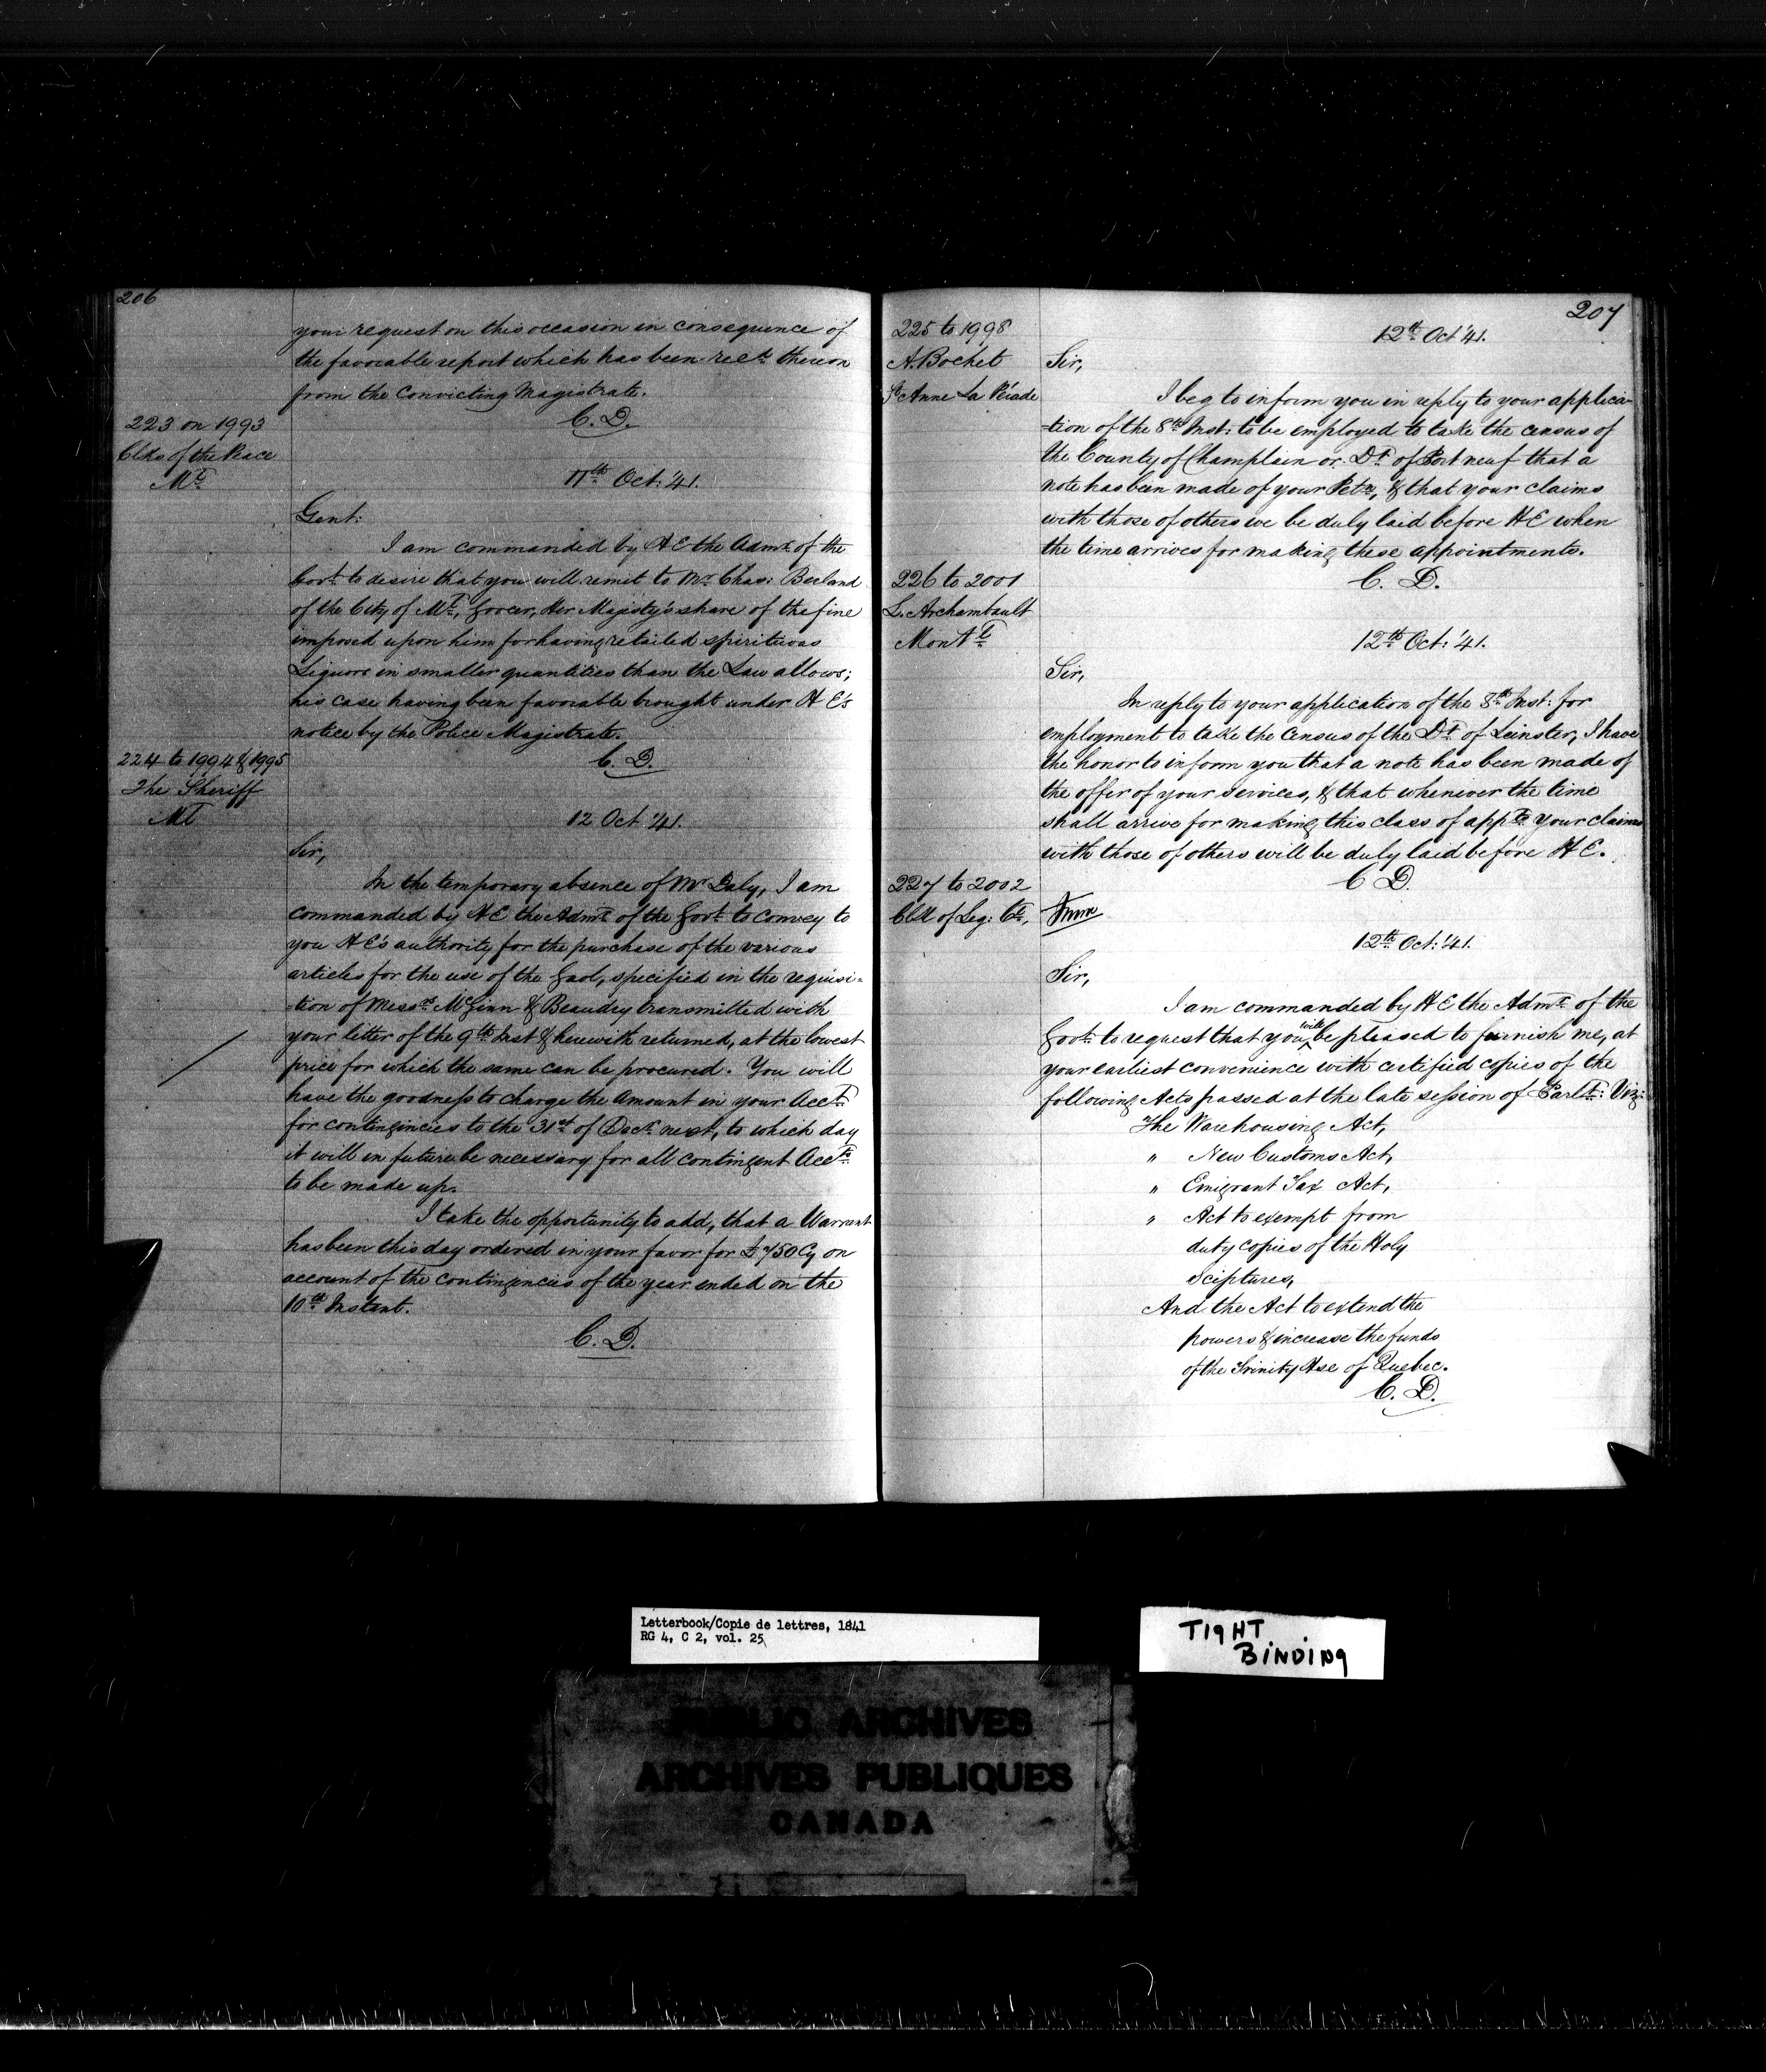 206
your request on this occasion in consequence of
the favorable report which has been recd. thereon
from the Convicting Magistrate.
C. D.
223 on 1993
Clks of the Peace
Ml
11th Oct: '41.
Gent:
I am commanded by H E the Admr. of the
Govt. to desire that you will remit to Mr. Chas: Berland
of the City of Ml, Grocer, Her Majesty's share of the fine
imposed upon him for having retailed spirituous
Liquors in smaller quantities than the Law allows;
his case having been favorable brought under H E's
notice by the Police Magistrate.
C. D.
224 to 1994 & 1995
The Sheriff
Ml
12 Oct '41.
Sir,
In the temporary absence of Mr Daly, I am
commanded by H E the Admr. of the Govt. to convey to
you H E's authority for the purchase of the various
articles for the use of the Gaol, specified in the requisi-
-tion of Messrs McGinn & Beaudry transmitted with
your letter of the 9th Inst & herewith returned, at the lowest
price for which the same can be procured. You will
have the goodness to charge the Amount in your Acct.
for contingincies to the 31st of Decr. next, to which day
it will in future be necessary for all contingent Accts.
to be made up.
I take the opportunity to add, that a Warrant
has been this day ordered in your favor for £750 Cy on
account of the contingencies of the year ended on the
10th Instant.
C. D.
207
225 to 1998
A. Bochet
St Anne La Périade
12th Oct '41.
Sir,
I beg to inform you in reply to your applica-
-tion of the 8th Inst: to be employed to take the census of
the County of Champlain or Dt. of Portneuf that a
note has been made of your Petn, & that your claims
with those of others we be duly laid before H E when
the time arrives for making these appointments.
C. D.
226 to 2001
L. Archambault
Montl
12th Oct: '41.
Sir,
In reply to your application of the 8th Inst: for
employment to take the Census of the Dt. of Leinster, I have
the honor to inform you that a note has been made of
the offer of your services, & that whenever the time
shall arrive for making this class of appts your claims
with those of others will be duly laid before H E.
C D.
227 to 2002
Clk of Leg: Cl.
12th Oct: '41.
Sir,
I am commanded by H E the Admr. of the
Govt. to request that you will be pleased to furnish me, at
your earliest convenience with certified copies of the
following Acts passed at the late session of Parlt: Viz:
The Warehousing Act,
" New Customs Act,
" Emigrant Tax Act,
" Act to exempt from
duty copies of the Holy
Sciptures,
And the Act to extend the
powers & increase the funds
of the Trinity Hse of Quebec.
C. D.
Letterbook/Copie de lettres, 1841
RG 4, C 2, vol. 25
TIGHT
BINDING
PUBLIC ARCHIVES
ARCHIVES PUBLIQUES
CANADA